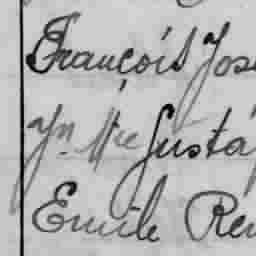 François Jos
Jn. Mce Gusta
Emile Ren